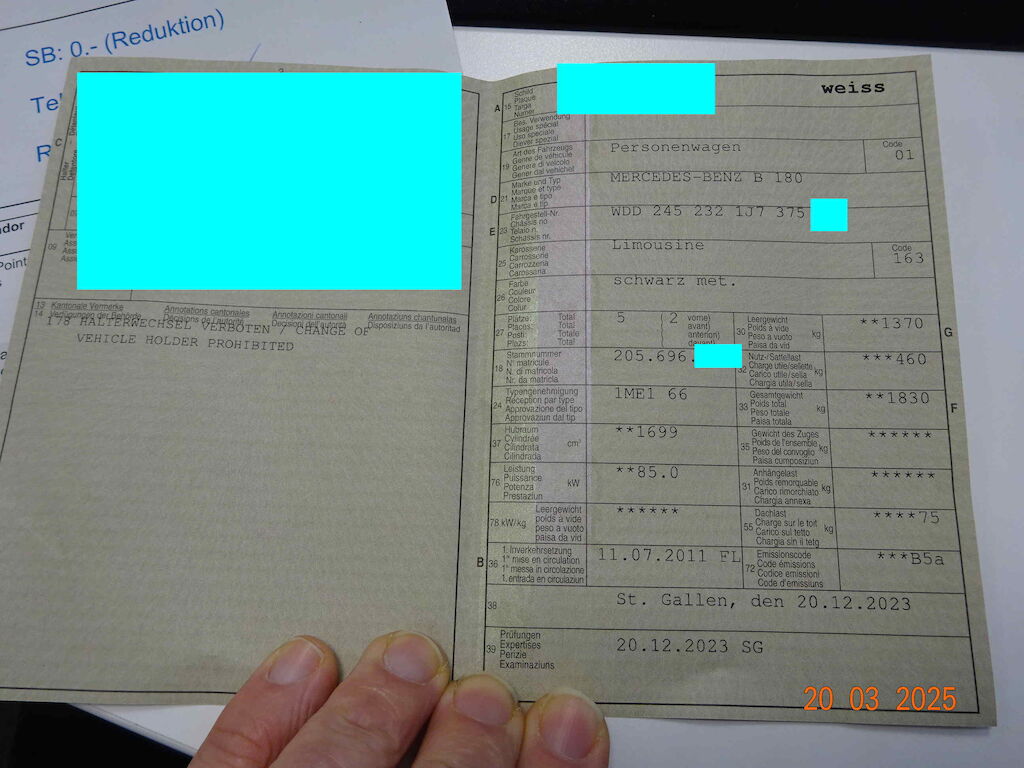 SB: 0.- (Reduktion)
C
Halter
09
13 Kantonale Vermerke
14 Verfügungen der Behörde
Annotations cantonales
Décisions de l'autorité
Annotazioni cantonali
Decisioni dell'autorità
Annotaziuns chantunalas
Disposiziuns da l'autoritad
178 HALTERWECHSEL VERBOTEN / CHANGE OF
VEHICLE HOLDER PROHIBITED
A 15 Schild
Plaque
Targa
Numer
weiss
17 Bes. Verwendung
Usage spécial
Uso speciale
Diever spezial
19 Art des Fahrzeugs
Genre de véhicule
Genere di veicolo
Gener dal vehichel
Personenwagen
Code
01
D 21 Marke und Typ
Marque et type
Marca e tipo
Marca e tip
MERCEDES-BENZ B 180
E 23 Fahrgestell-Nr.
Châssis no
Telaio n.
Schassis nr.
WDD 245 232 1J7 375
25 Karosserie
Carrosserie
Carrozzeria
Carossaria
Limousine
Code
163
26 Farbe
Couleur
Colore
Colur
schwarz met.
27 Plätze: Total
Places: Total
Posti: Totale
Plazs: Total
5 ( 2 vorne)
avant)
anteriori)
davant)
30 Leergewicht
Poids à vide
Peso a vuoto
Paisa da vid
kg
**1370
G
18 Stammnummer
N° matricule
N. di matricola
Nr. da matricla
205.696.
32 Nutz-/Sattellast
Charge utile/sellette
Carico utile/sella
Chargia utila/sella
kg
***460
24 Typengenehmigung
Réception par type
Approvazione del tipo
Approvaziun dal tip
1ME1 66
33 Gesamtgewicht
Poids total
Peso totale
Paisa totala
kg
**1830
F
37 Hubraum
Cylindrée
Cilindrata
Cilindrada
cm³
**1699
35 Gewicht des Zuges
Poids de l'ensemble
Peso del convoglio
Paisa cumposiziun
kg
******
76 Leistung
Puissance
Potenza
Prestaziun
kW
**85.0
31 Anhängelast
Poids remorquable
Carico rimorchiato
Chargia annexa
kg
******
78 kW/kg
Leergewicht
poids à vide
peso à vuoto
paisa da vid
******
55 Dachlast
Charge sur le toit
Carico sul tetto
Chargia sin il tetg
kg
****75
B 36 1. Inverkehrsetzung
1re mise en circulation
1a messa in circolazione
1. entrada en circulaziun
11.07.2011 FL
72 Emissionscode
Code émissions
Codice emissioni
Code d'emissiuns
***B5a
38 St. Gallen, den 20.12.2023
39 Prüfungen
Expertises
Perizie
Examinaziuns
20.12.2023 SG
20 03 2025